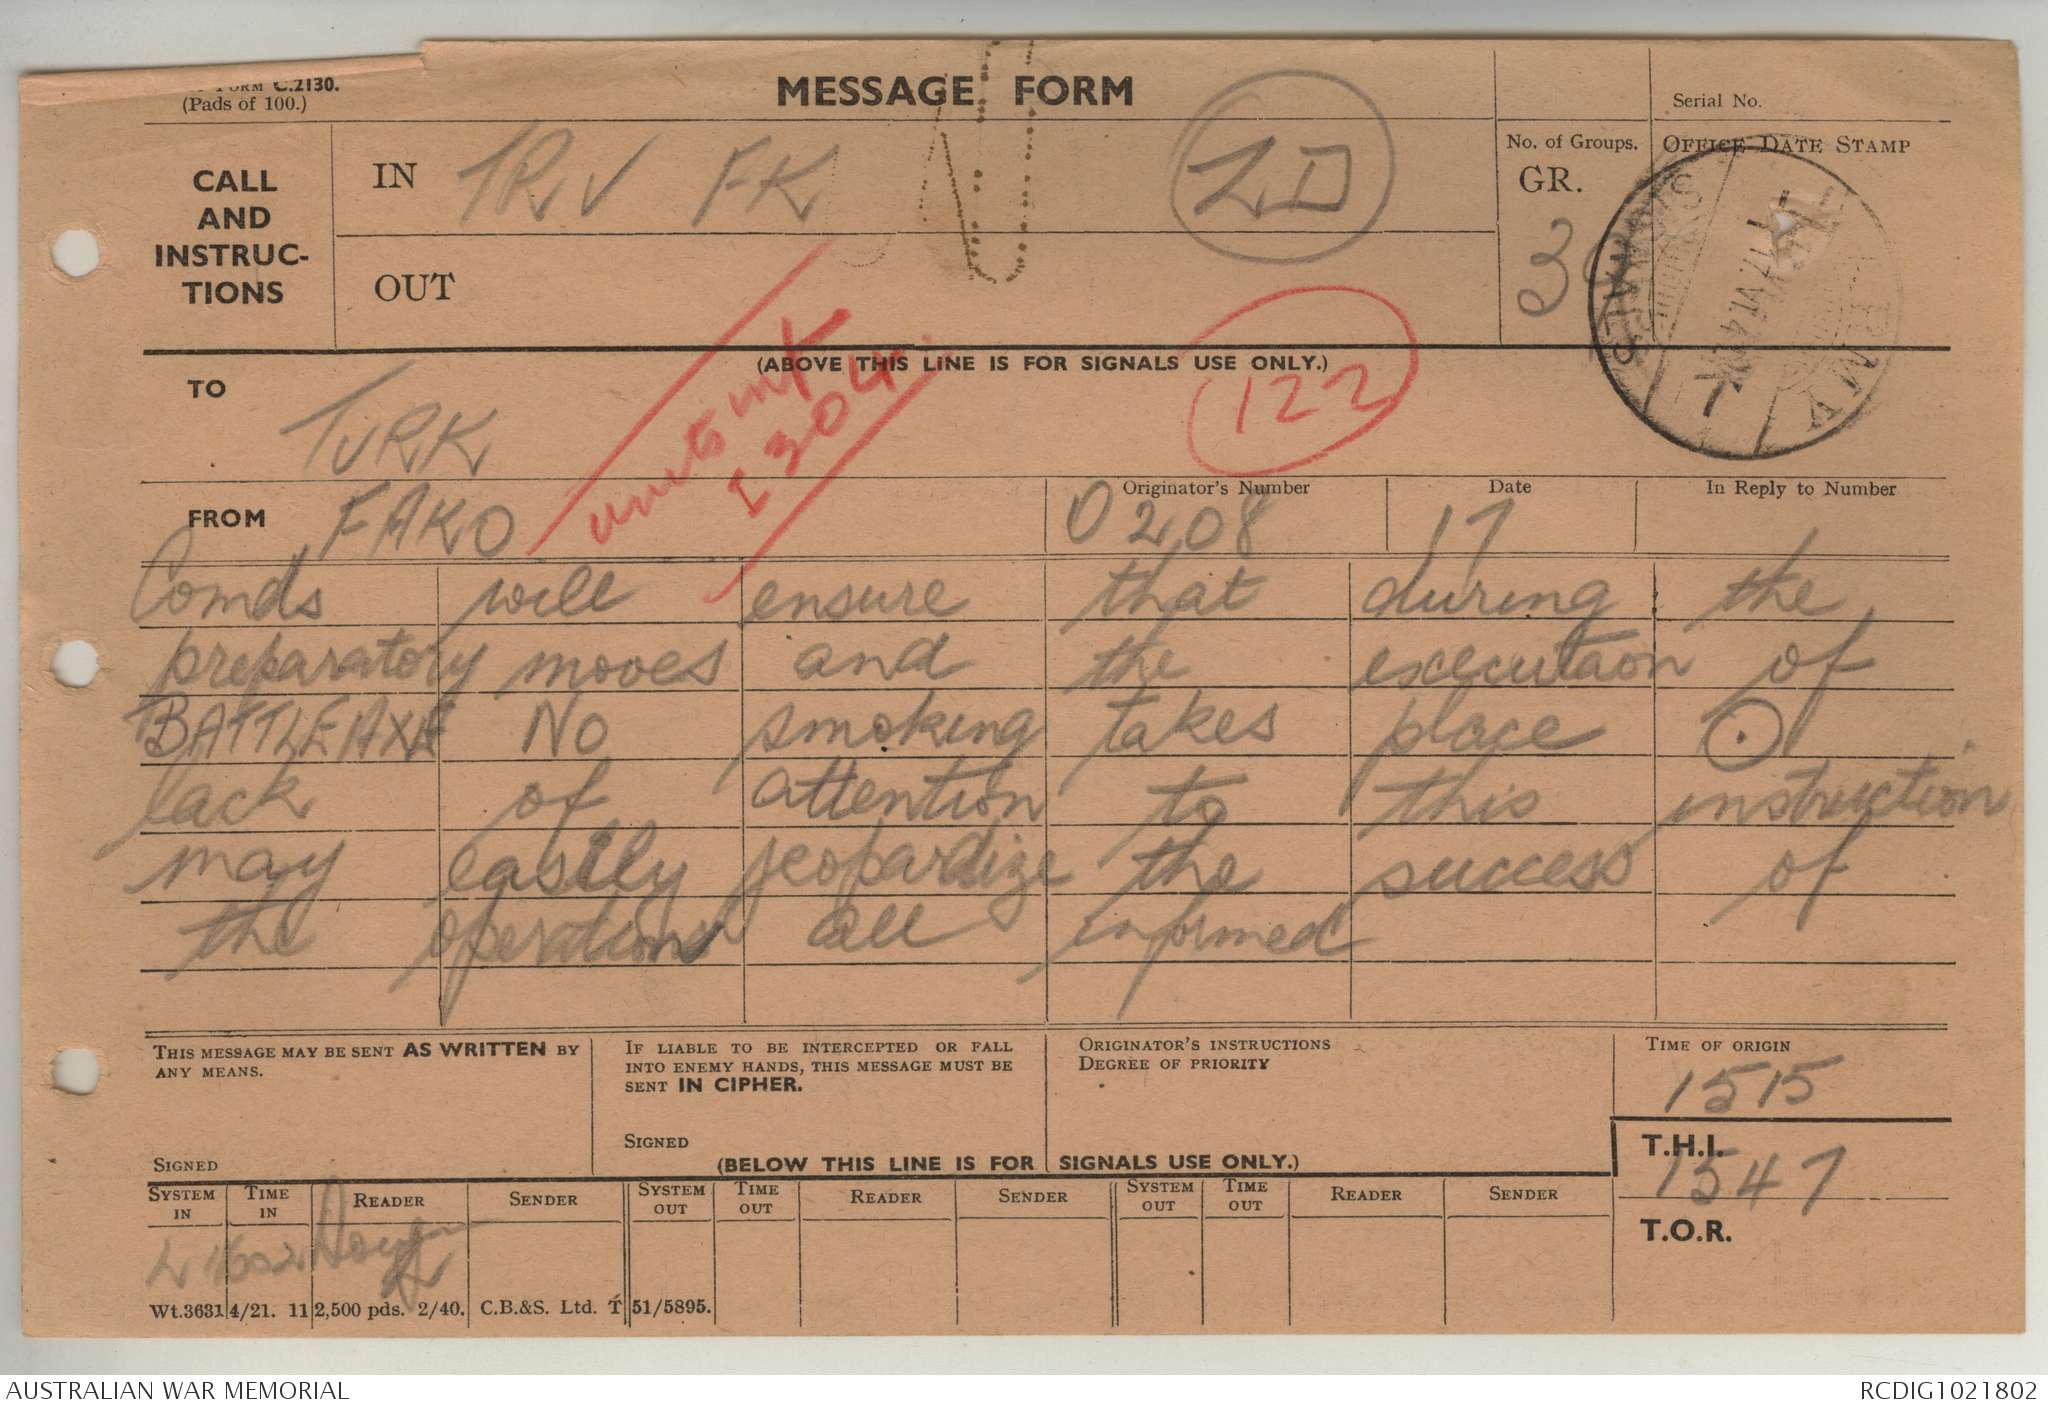 FORM C.2130.
(Pads of 100.)
MESSAGE FORM
Serial No.
CALL
AND
INSTRUC-
TIONS
IN TRV FK
LD
No. of Groups.
GR.
OFFICE DATE STAMP
OUT
ARMY
SIGNALS
(ABOVE THIS LINE IS FOR SIGNALS USE ONLY.)
TO TURK
I 304.
122
FROM FAKO
Originator's Number
0208
Date
17
In Reply to Number
Comds will ensure that during the
preparatory moves and the execution of
BATTLEAXE No smoking takes place ⊙
lack of attention to this instruction
may easily jeopardize the success of
the operation all informed
THIS MESSAGE MAY BE SENT AS WRITTEN BY
ANY MEANS.
SIGNED
IF LIABLE TO BE INTERCEPTED OR FALL
INTO ENEMY HANDS, THIS MESSAGE MUST BE
SENT IN CIPHER.
SIGNED
ORIGINATOR'S INSTRUCTIONS
DEGREE OF PRIORITY
TIME OF ORIGIN
1515
T.H.I.
1547
T.O.R.
(BELOW THIS LINE IS FOR SIGNALS USE ONLY.)
SYSTEM IN TIME IN READER SENDER SYSTEM OUT TIME OUT READER SENDER SYSTEM OUT TIME OUT READER SENDER
L 1602
Wt.36314/21. 112,500 pds. 2/40. C.B.&S. Ltd. T 51/5895.
AUSTRALIAN WAR MEMORIAL
RCDIG1021802